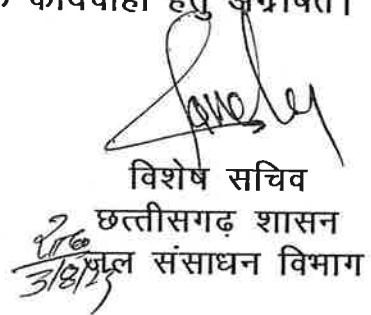 कार्यवाही हेतु अग्रेषित।
विशेष सचिव
छत्तीसगढ़ शासन
जल संसाधन विभाग